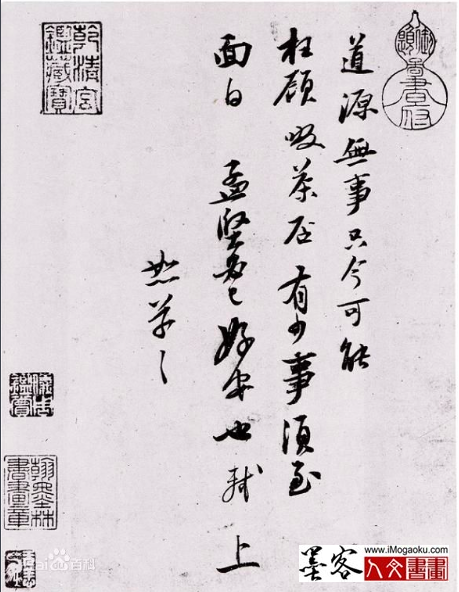 道源無事只今可能
枉顧啜茶否有少事須至
面白 孟堅必已好安也 軾 上
恕草々
乾清宮
鑑藏寶
翰墨林
書畫章
百科
www.iMogaoku.com
墨客
人文書畫